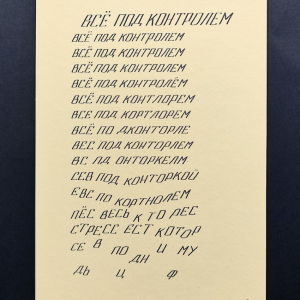 ВСЁ ПОД КОНТРОЛЕМ
ВСЁ ПОД КОНТРОЛЕМ
ВСЁ ПОД КОНТРОЛЕМ
ВСЁ ПОД КОНТРОЛЕМ
ВСЁ ПОД КОНТРОЛЁМ
ВСЁ ПОД КОНТЛОРЕМ
ВСЕ ПОД КОРТЛОРЕМ
ВСЁ ПО ДКОНТОРЛЕ
ВЕС ПОД КОНТОРЛЕМ
ВС ПД ОНТОРКЕЛМ
СЕВ ПОД КОНТОРКОЙ
ЕВС ПО КОРТНОЛЕМ
ПЁС ВЕСЬ К ТО ЛЕС
СТРЕСС ЕСТ КОТОР
СЕ В ПО ДН И МУ
ДЬ Ц Ф